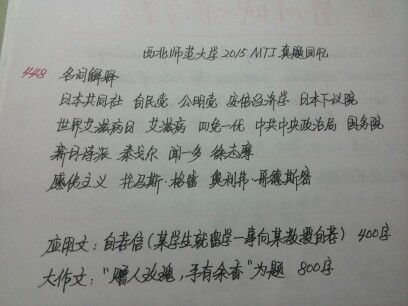 西北师范大学2015 MTI真题回忆
448 名词解释
日本共同社 自民党 公明党 安倍经济学 日本下议院
世界艾滋病日 艾滋病 四免一优 中共中央政治局 国务院
新月诗派 泰戈尔 闻一多 徐志摩
感伤主义 托马斯·格雷 奥利弗·哥德斯密
应用文：自荐信（某学生就留学一事向某教授自荐） 400字
大作文：“赠人玫瑰，手有余香”为题 800字